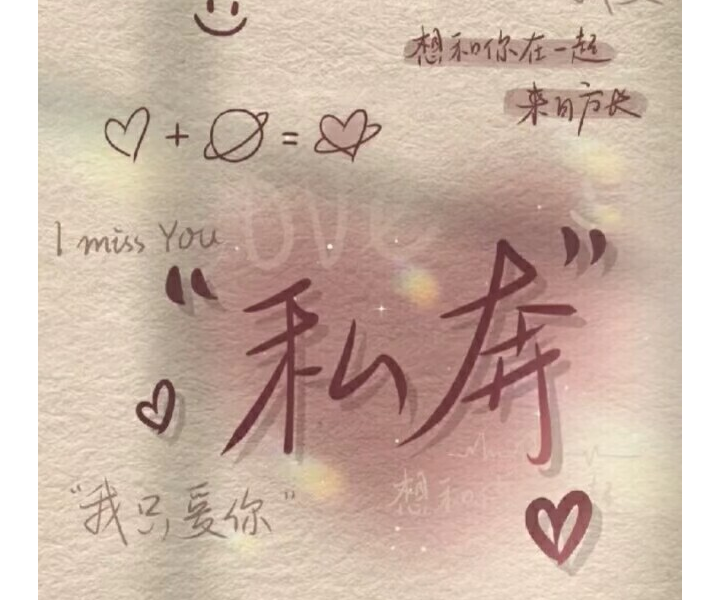 想和你在一起
来日方长
I miss You
OVE
“私奔”
“我只爱你”
想和